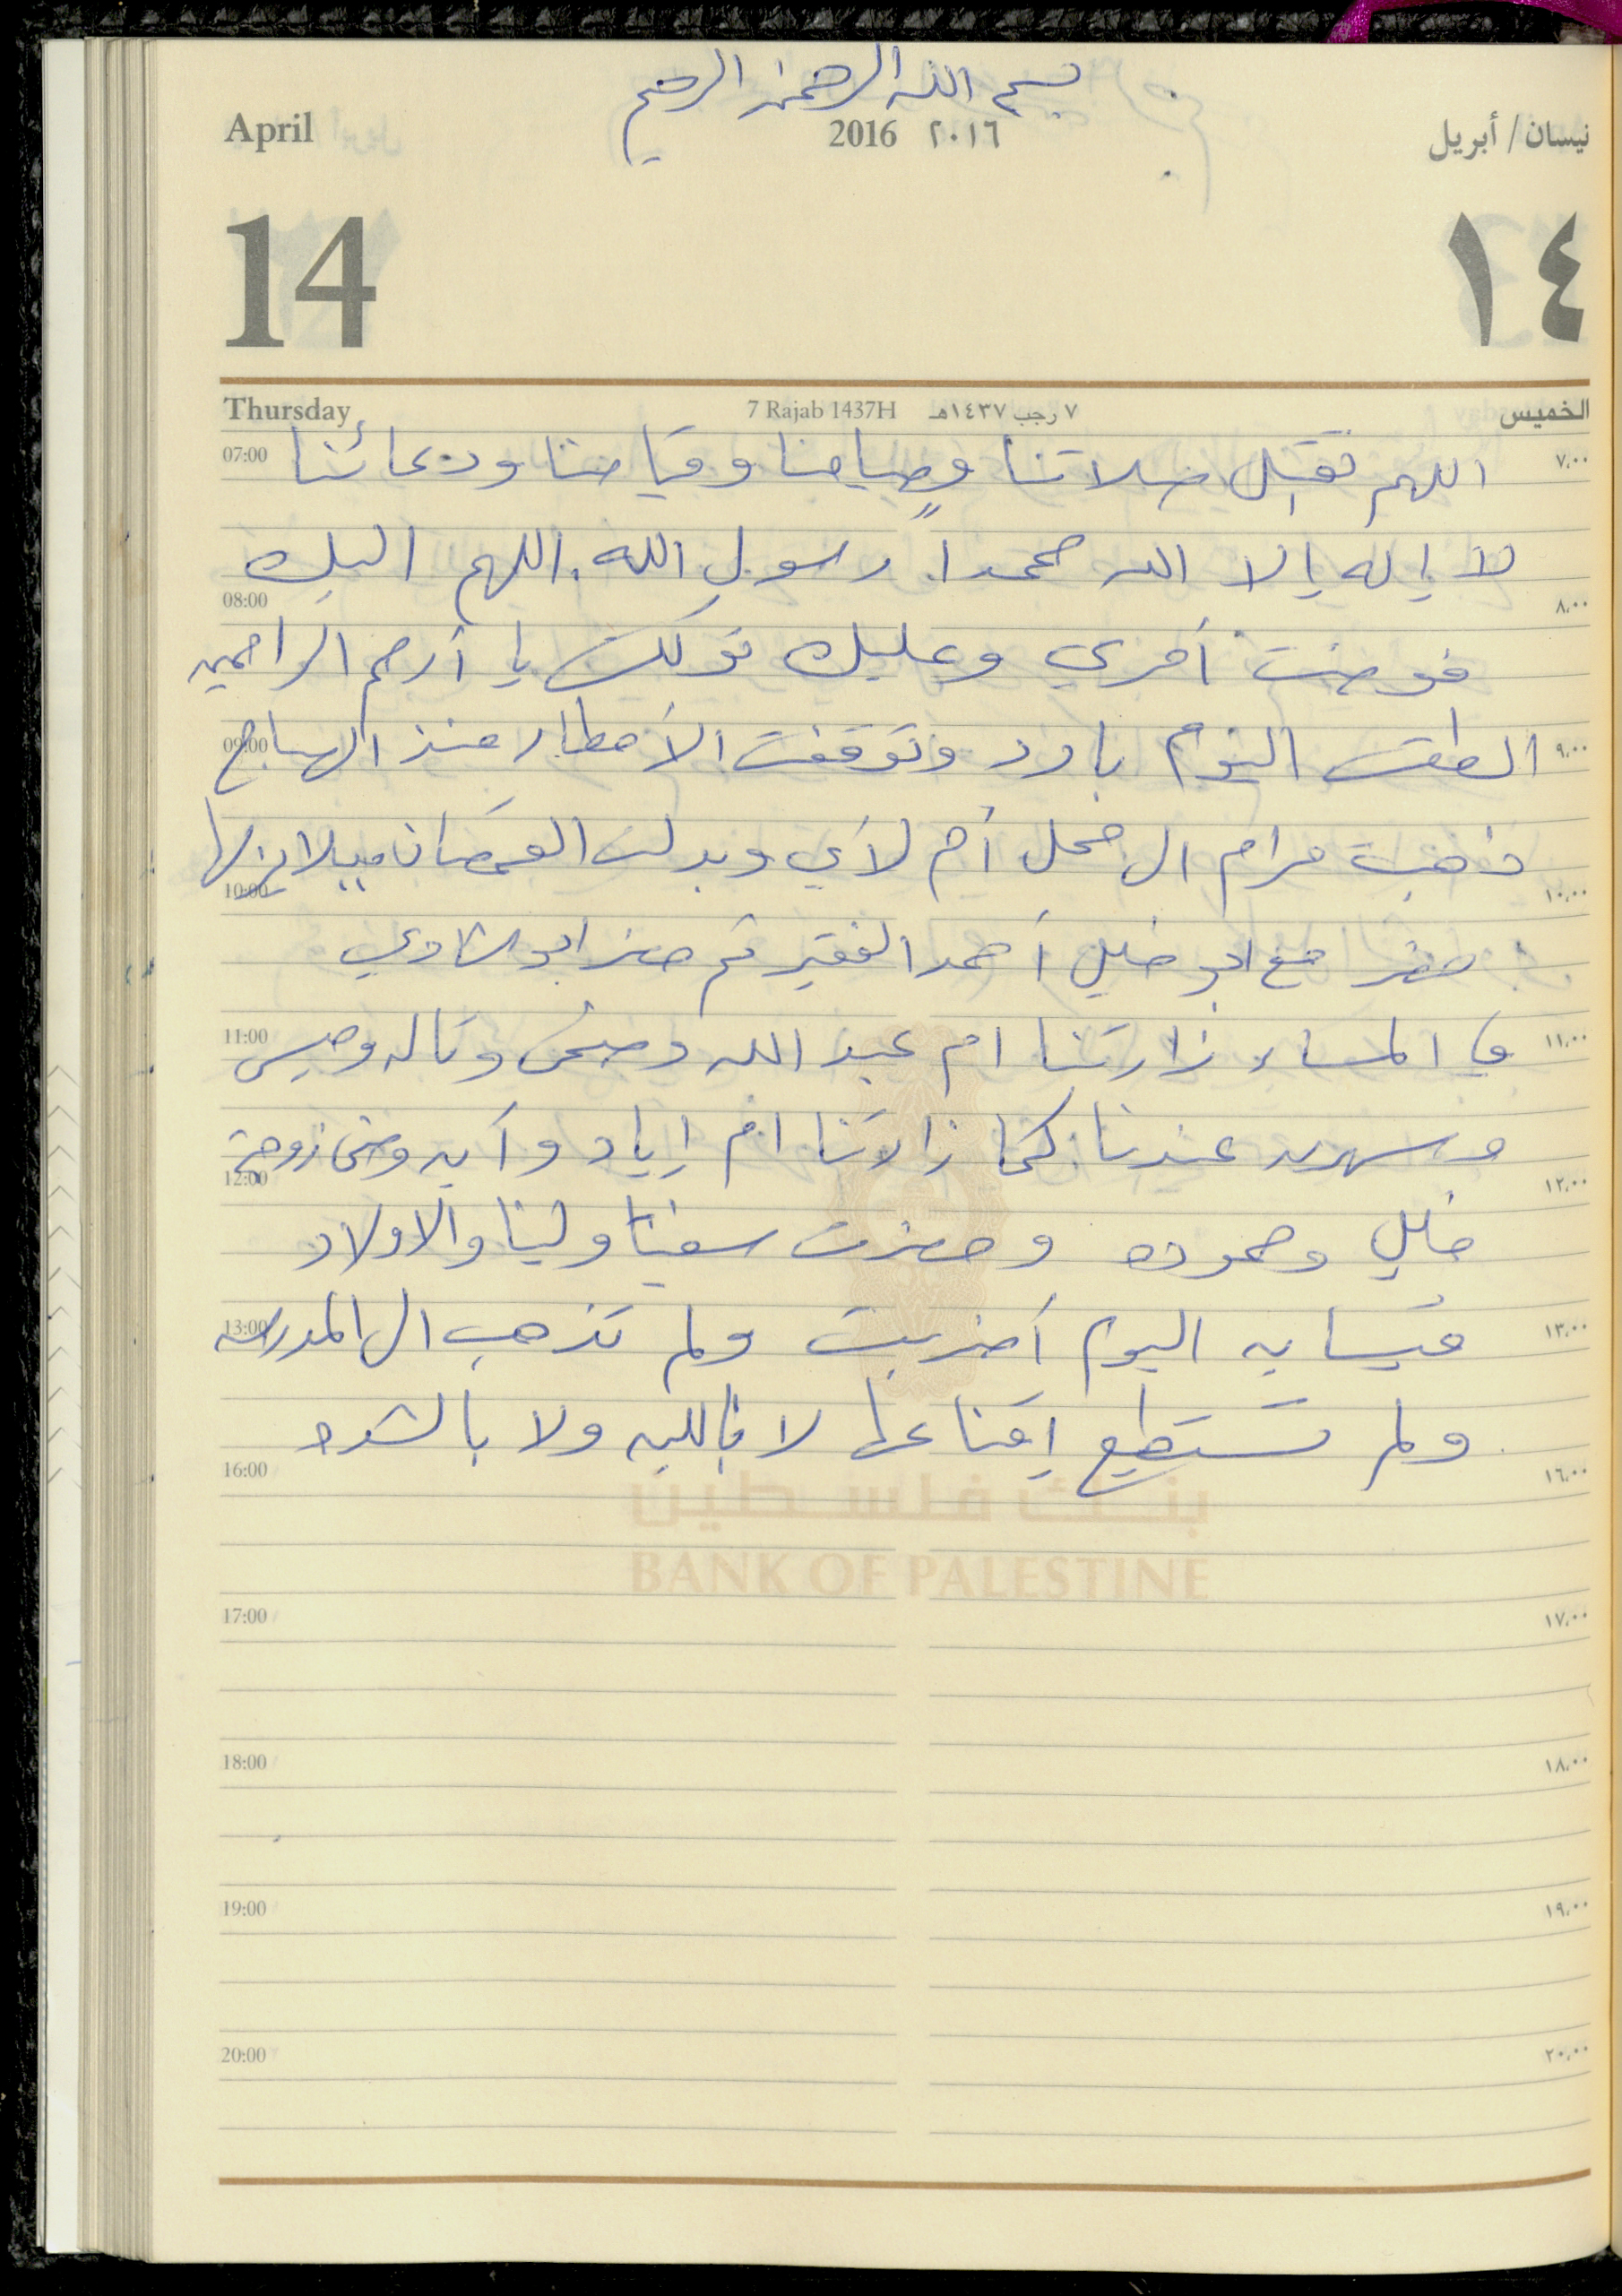 بسم الله الرحمن الرحيم
April 2016 ٢٠١٦ نيسان / أبريل
14 ١٤
Thursday 7 Rajab 1437H ٧ رجب ١٤٣٧هـ الخميس
07:00 اللهم تقبل صلاتنا وصيامنا وقيامنا ودعائنا ٧,٠٠
لا إله إلا الله محمداً رسول الله. اللهم اليك
08:00 ٨,٠٠
فوضت أمري وعليك توكلت يا أرحم الراحمين
09:00 الطقس اليوم بارد وتوقفت الأمطار منذ الصباح ٩,٠٠
ذهبت مرام الى محل أم لؤي وبدلت القمصان
10:00 ١٠,٠٠
حضر مع ابو خليل أحمد الفقير ثم حضر ابو الشادي
11:00 في المساء زارتنا ام عبد الله وضحى وتاله وميس ١١,٠٠
وسهرن عندنا كما زارتنا ام إياد وآيه ومنى زوجة
12:00 ١٢,٠٠
خليل وحموده وحضرت سفيتا ولينا والاولاد
13:00 اليوم أضربت ولم تذهب الى المدرسه ١٣,٠٠
ولم تستطيع إقناعها لا باللين ولا بالشده
16:00 ١٦,٠٠
بنك فلسطين
BANK OF PALESTINE
17:00 ١٧,٠٠
18:00 ١٨,٠٠
19:00 ١٩,٠٠
20:00 ٢٠,٠٠